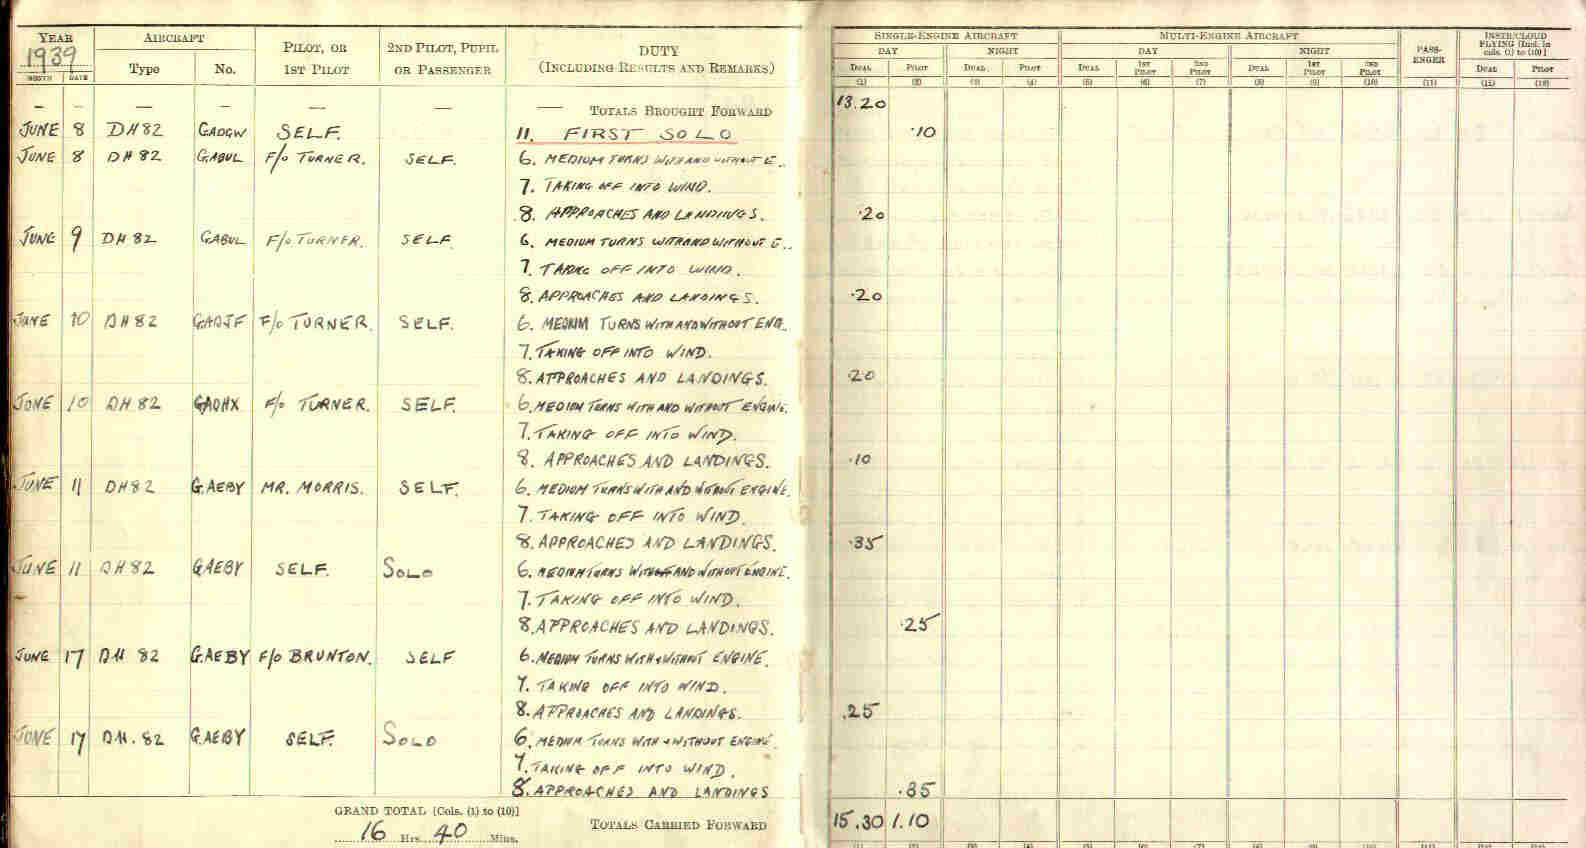 YEAR 1939 AIRCRAFT PILOT, OR 1ST PILOT 2ND PILOT, PUPIL OR PASSENGER DUTY (INCLUDING RESULTS AND REMARKS) SINGLE-ENGINE AIRCRAFT MULTI-ENGINE AIRCRAFT PASS-ENGER INSTR/CLOUD FLYING [Incl. in cols. (1) to (10)]
DAY NIGHT DAY NIGHT
MONTH DATE Type No. DUAL PILOT DUAL PILOT DUAL 1ST PILOT 2ND PILOT DUAL 1ST PILOT 2ND PILOT DUAL PILOT
(1) (2) (3) (4) (5) (6) (7) (8) (9) (10) (11) (12) (13)
— — — — — — — TOTALS BROUGHT FORWARD 13.20
JUNE 8 DH82 GADGW SELF. 11. FIRST SOLO .10
JUNE 8 DH82 GABUL F/O TURNER. SELF. 6. MEDIUM TURNS WITH AND WITHOUT E..
7. TAKING OFF INTO WIND.
8. APPROACHES AND LANDINGS. .20
JUNE 9 DH82 GABUL F/O TURNER. SELF. 6. MEDIUM TURNS WITH AND WITHOUT E..
7. TAKING OFF INTO WIND.
8. APPROACHES AND LANDINGS. .20
JUNE 10 DH82 GADJF F/O TURNER. SELF. 6. MEDIUM TURNS WITH AND WITHOUT ENG.
7. TAKING OFF INTO WIND.
8. APPROACHES AND LANDINGS. .20
JUNE 10 DH82 GADHX F/O TURNER. SELF. 6. MEDIUM TURNS WITH AND WITHOUT ENGINE.
7. TAKING OFF INTO WIND.
8. APPROACHES AND LANDINGS. .10
JUNE 11 DH82 G.AEBY MR. MORRIS. SELF. 6. MEDIUM TURNS WITH AND WITHOUT ENGINE.
7. TAKING OFF INTO WIND.
8. APPROACHES AND LANDINGS. .35
JUNE 11 DH82 GAEBY SELF. SOLO 6. MEDIUM TURNS WITH AND WITHOUT ENGINE.
7. TAKING OFF INTO WIND.
8. APPROACHES AND LANDINGS. .25
JUNE 17 DH 82 G.AEBY F/O BRUNTON. SELF 6. MEDIUM TURNS WITH + WITHOUT ENGINE.
7. TAKING OFF INTO WIND.
8. APPROACHES AND LANDINGS. .25
JUNE 17 DH.82 G.AEBY SELF. SOLO 6. MEDIUM TURNS WITH + WITHOUT ENGINE.
7. TAKING OFF INTO WIND.
8. APPROACHES AND LANDINGS .35
GRAND TOTAL [Cols. (1) to (10)]
16 Hrs. 40 Mins. TOTALS CARRIED FORWARD 15.30 1.10